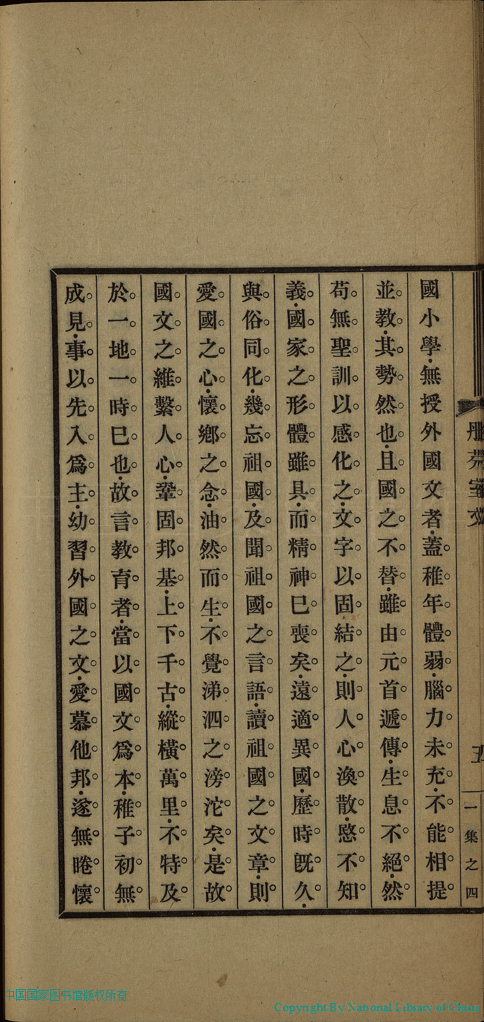 國小學無授外國文者蓋稚年體弱腦力未充不能相提
並教其勢然也且國之不替雖由元首遞傳生息不絕然
苟無聖訓以感化之文字以固結之則人心渙散愍不知
義國家之形體雖具而精神已喪矣遠適異國歷時既久
與俗同化幾忘祖國及聞祖國之言語讀祖國之文章則
愛國之心懷鄉之念油然而生不覺涕泗之滂沱矣是故
國文之維繫人心鞏固邦基上下千古縱橫萬里不特及
於一地一時已也故言教育者當以國文爲本稚子初無
成見事以先入爲主幼習外國之文愛慕他邦遂無睠懷
五
一集之四
中国国家图书馆版权所有
Copyright By National Library of China